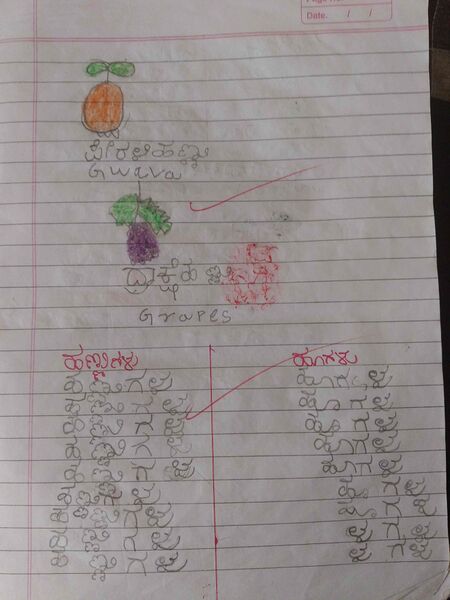 Date. / /
ಪೇರಳೆಹಣ್ಣು
Guava
ದ್ರಾಕ್ಷಿಹಣ್ಣು
Grapes
ಹಣ್ಣುಗಳು ಹೂಗಳು
ಹಣ್ಣುಗಳು ಹೂಗಳು
ಹಣ್ಣುಗಳು ಹೂಗಳು
ಹಣ್ಣುಗಳು ಹೂಗಳು
ಹಣ್ಣುಗಳು ಹೂಗಳು
ಹಣ್ಣುಗಳು ಹೂಗಳು
ಹಣ್ಣುಗಳು ಹೂಗಳು
ಹಣ್ಣುಗಳು ಹೂಗಳು
ಹಣ್ಣುಗಳು ಹೂಗಳು